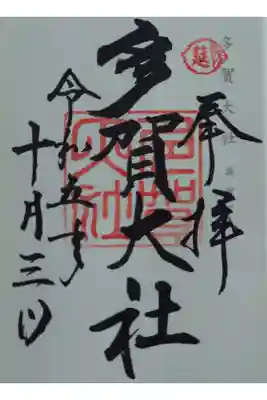 奉拝
多賀大社
令和五年
十月三日
延
多賀大社